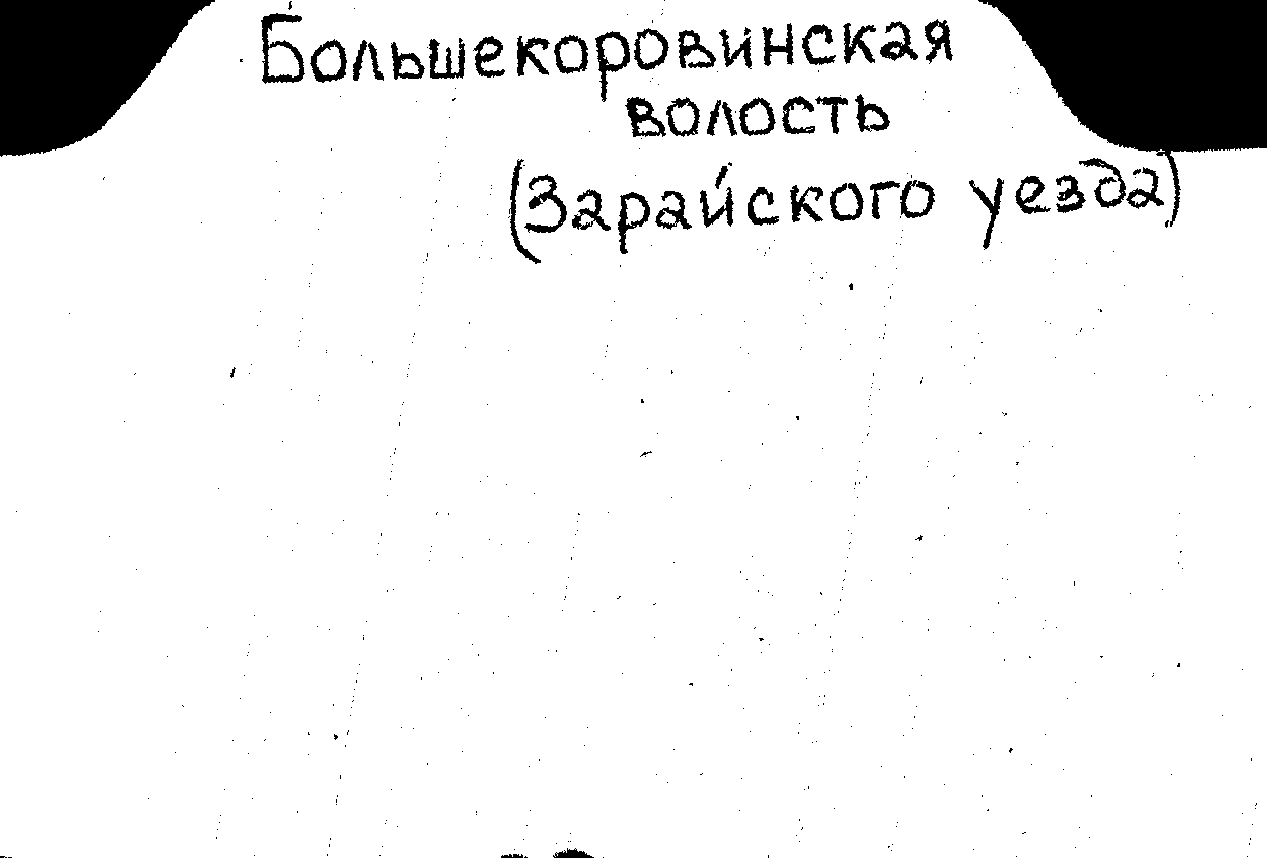 Большекоровинская
волость
(Зарайского уезда)